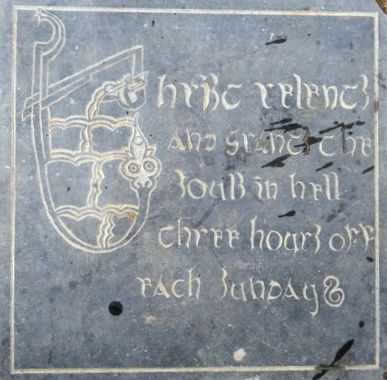 Christ relents
and grants the
souls in hell
three hours off
each Sunday